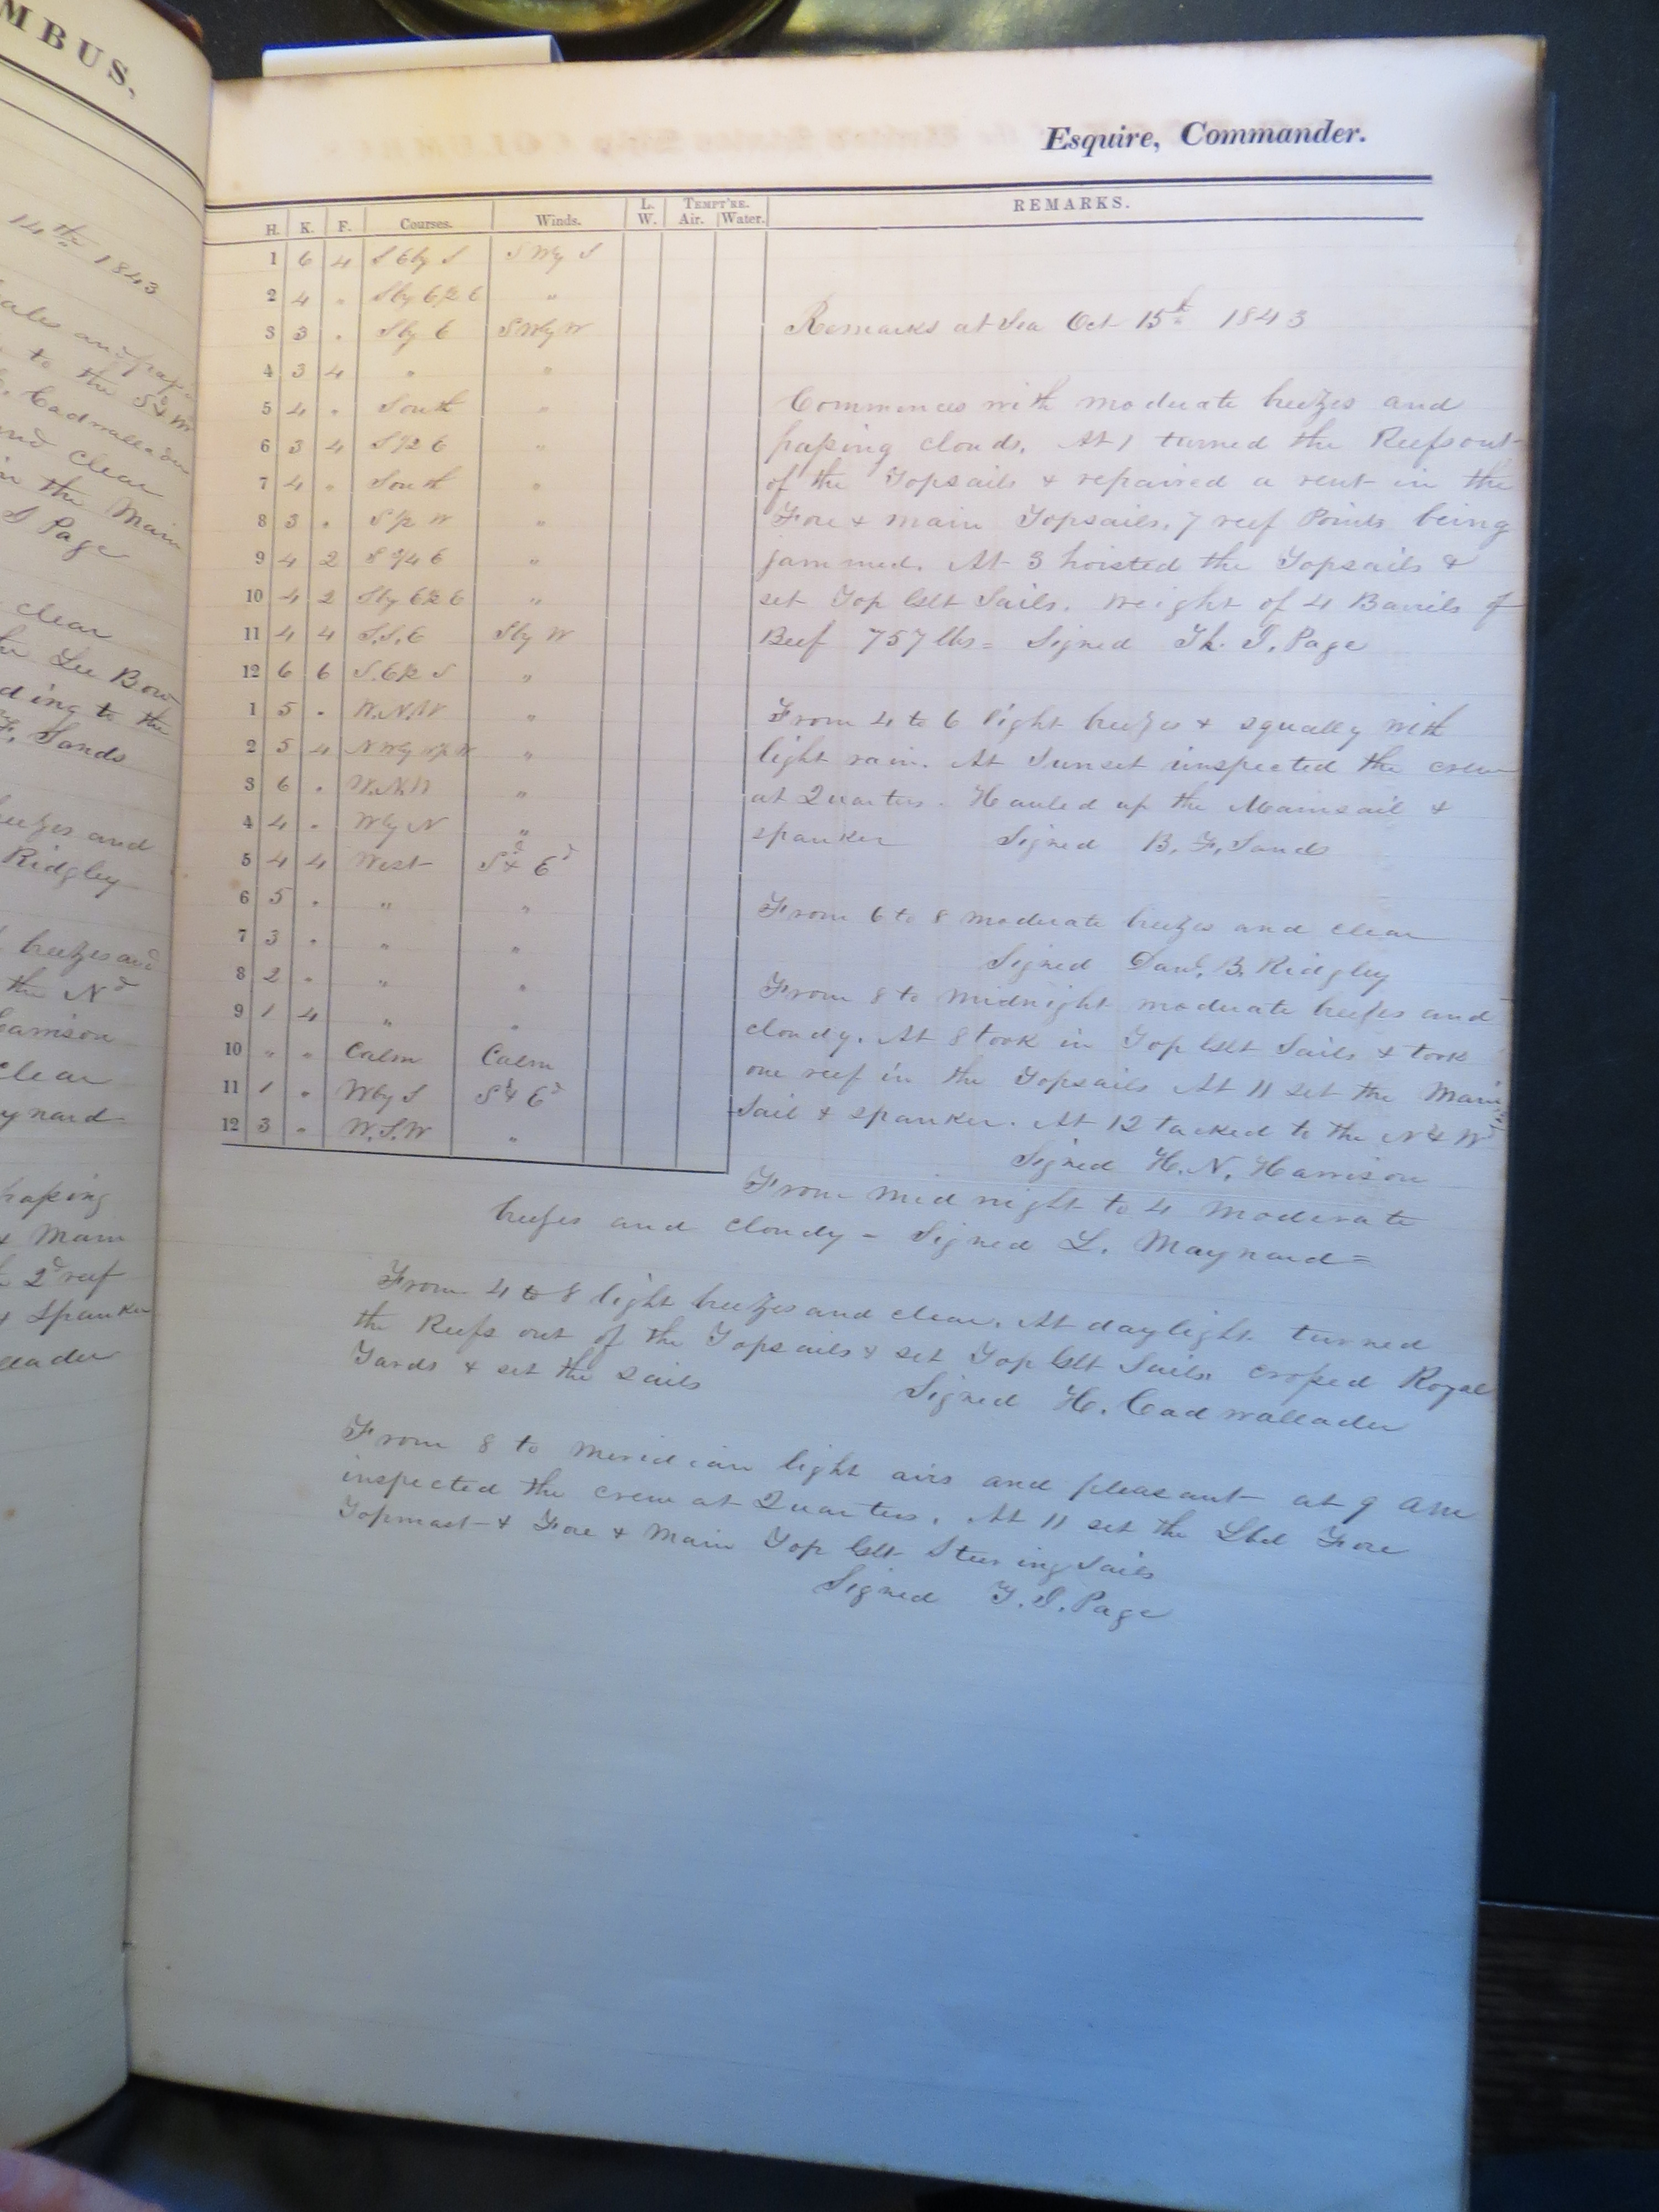 MBUS,
14th 1843
to the Sd & W
Cadwallader
and clear
in the Main
J Page
clear
Lee Bow
ding to the
F. Sands
and
Ridgley
breezes and
the Nd
Harrison
clear
ynard
passing
& Main
2d reef
& Spanker
llader
Esquire, Commander.
H. K. F. Courses. Winds. L. W. TEMPT'RE. Air. Water. REMARKS.
1 6 4 S E by S S W by S
2 4 " S by E 1/2 E "
3 3 " S by E S W by W
Remarks at Sea Oct 15th 1843
4 3 4 " "
5 4 " South "
Commences with moderate breezes and
6 3 4 S 1/2 E "
passing clouds. At 1 turned the Reefs out
7 4 " South "
of the Topsails & repaired a rent in the
8 3 " S 1/2 W "
Fore & main Topsails, 7 reef Points being
9 4 2 S 3/4 E "
jammed. At 3 hoisted the Topsails &
10 4 2 S by E 1/2 E "
set Top Glt Sails. Weight of 4 Barrils of
11 4 4 S.S.E S by W
Beef 757 lbs = Signed Th. J. Page
12 6 6 S.E 1/2 S "
1 5 " W.N.W "
From 4 to 6 light breezes & squally with
2 5 4 N W by W 1/2 W "
light rain. At Sunset inspected the crew
3 6 " W.N.W "
at Quarters. Hauled up the Mainsail &
4 4 " W by N "
spanker Signed B. F. Sands
5 4 4 West Sd & Ed
6 5 " " "
From 6 to 8 moderate breezes and clear
7 3 " " "
Signed Danl. B. Ridgley
8 2 " " "
From 8 to midnight moderate breezes and
9 1 4 " "
cloudy. At 8 took in Top Glt Sails & took
10 " " Calm Calm
one reef in the Topsails At 11 set the Main
11 1 " W by S Sd & Ed
Sail & spanker. At 12 tacked to the Nd & Wd
12 3 " W.S.W "
Signed H. N. Harrison
From midnight to 4 moderate
breezes and cloudy = Signed L. Maynard =
From 4 to 8 light breezes and clear. At daylight turned
the Reefs out of the Topsails & set Top Glt Sails. crossed Royal
Yards & set the sails
Signed H. Cadwallader
From 8 to meridian light airs and pleasant at 9 AM
inspected the crew at Quarters. At 11 set the Lbd Fore
Topmast & Fore & Main Top Glt Steering Sails
Signed T. J. Page